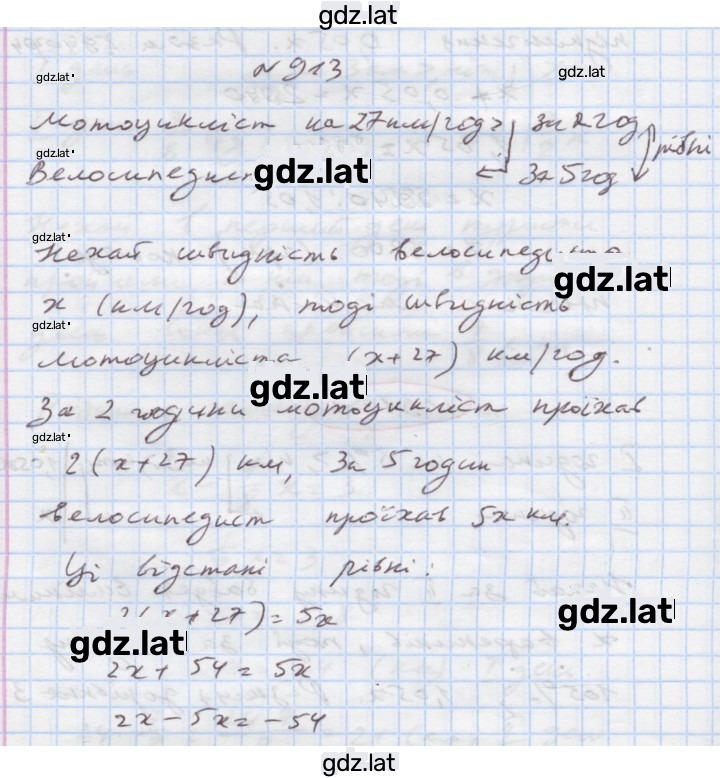 gdz.lat
№ 913
gdz.lat gdz.lat
Мотоцикліст на 27 км/год > за 2 год
gdz.lat рівні
Велосипедист gdz.lat За 5 год
gdz.lat
Нехай швидність
gdz.lat
х (км/год), тоді швидність
gdz.lat
мотоцикліста (х+27) км/год.
gdz.lat
За 2 години мотоцикліст проїхав
gdz.lat
2(х+27) км, За 5 годин
велосипедист проїхав 5х км.
Ці відстані рівні:
2(х+27)=5х
gdz.lat
gdz.lat
2х+54=5х
2х-5х=-54
gdz.lat